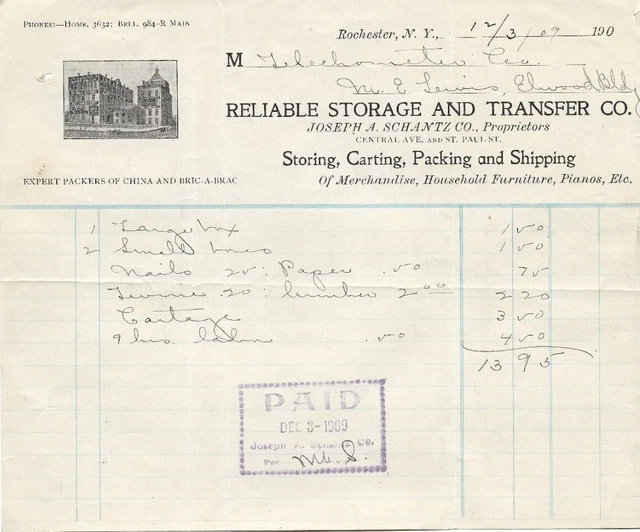 PHONES:—HOME, 3632; BELL, 984-R MAIN
Rochester, N. Y., 12/3/09 190
M Telechometer Co.
M. E. Lewis, Elwood Bldg
RELIABLE STORAGE AND TRANSFER CO.
JOSEPH A. SCHANTZ CO., Proprietors
CENTRAL AVE. AND ST. PAUL ST.
Storing, Carting, Packing and Shipping
EXPERT PACKERS OF CHINA AND BRIC-A-BRAC
Of Merchandise, Household Furniture, Pianos, Etc.
1 Large box 1 50
2 Small boxes 1 50
Nails 25: Paper .50 75
Twine .20: lumber 2.00 2 20
Cartage 3 50
9 hrs. labor .50 4 50
13 95
PAID
DEC 3-1909
Joseph A. Schantz Co.
Per